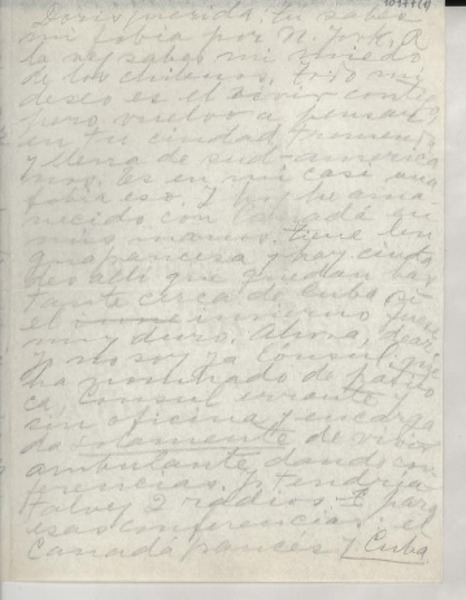 Doris querida: tú sabes
mi fobia por N. York. A
la vez sabes mi miedo
de los chilenos. Todo mi
deseo es el vivir contigo,
pero vuelvo a pensar
en tu ciudad tremenda
y llena de sud-america
nos. Es en mi casi una
fobia eso. Y hoy he ama-
necido con Canadá en
mis manos. Tiene len
gua francesa y hay ciuda
des allí que quedan bas
tante cerca de Cuba si
el invierno fuese
muy duro. Ahora, dear,
yo no soy ya Consul: me
ha nombrado de
Consul errante y
sin oficina y encarga
da solamente de vivir
ambulante, dando con
ferencias. Y tendría
talvez 2 radios para
esas conferencias: el
Canadá francés y Cuba.